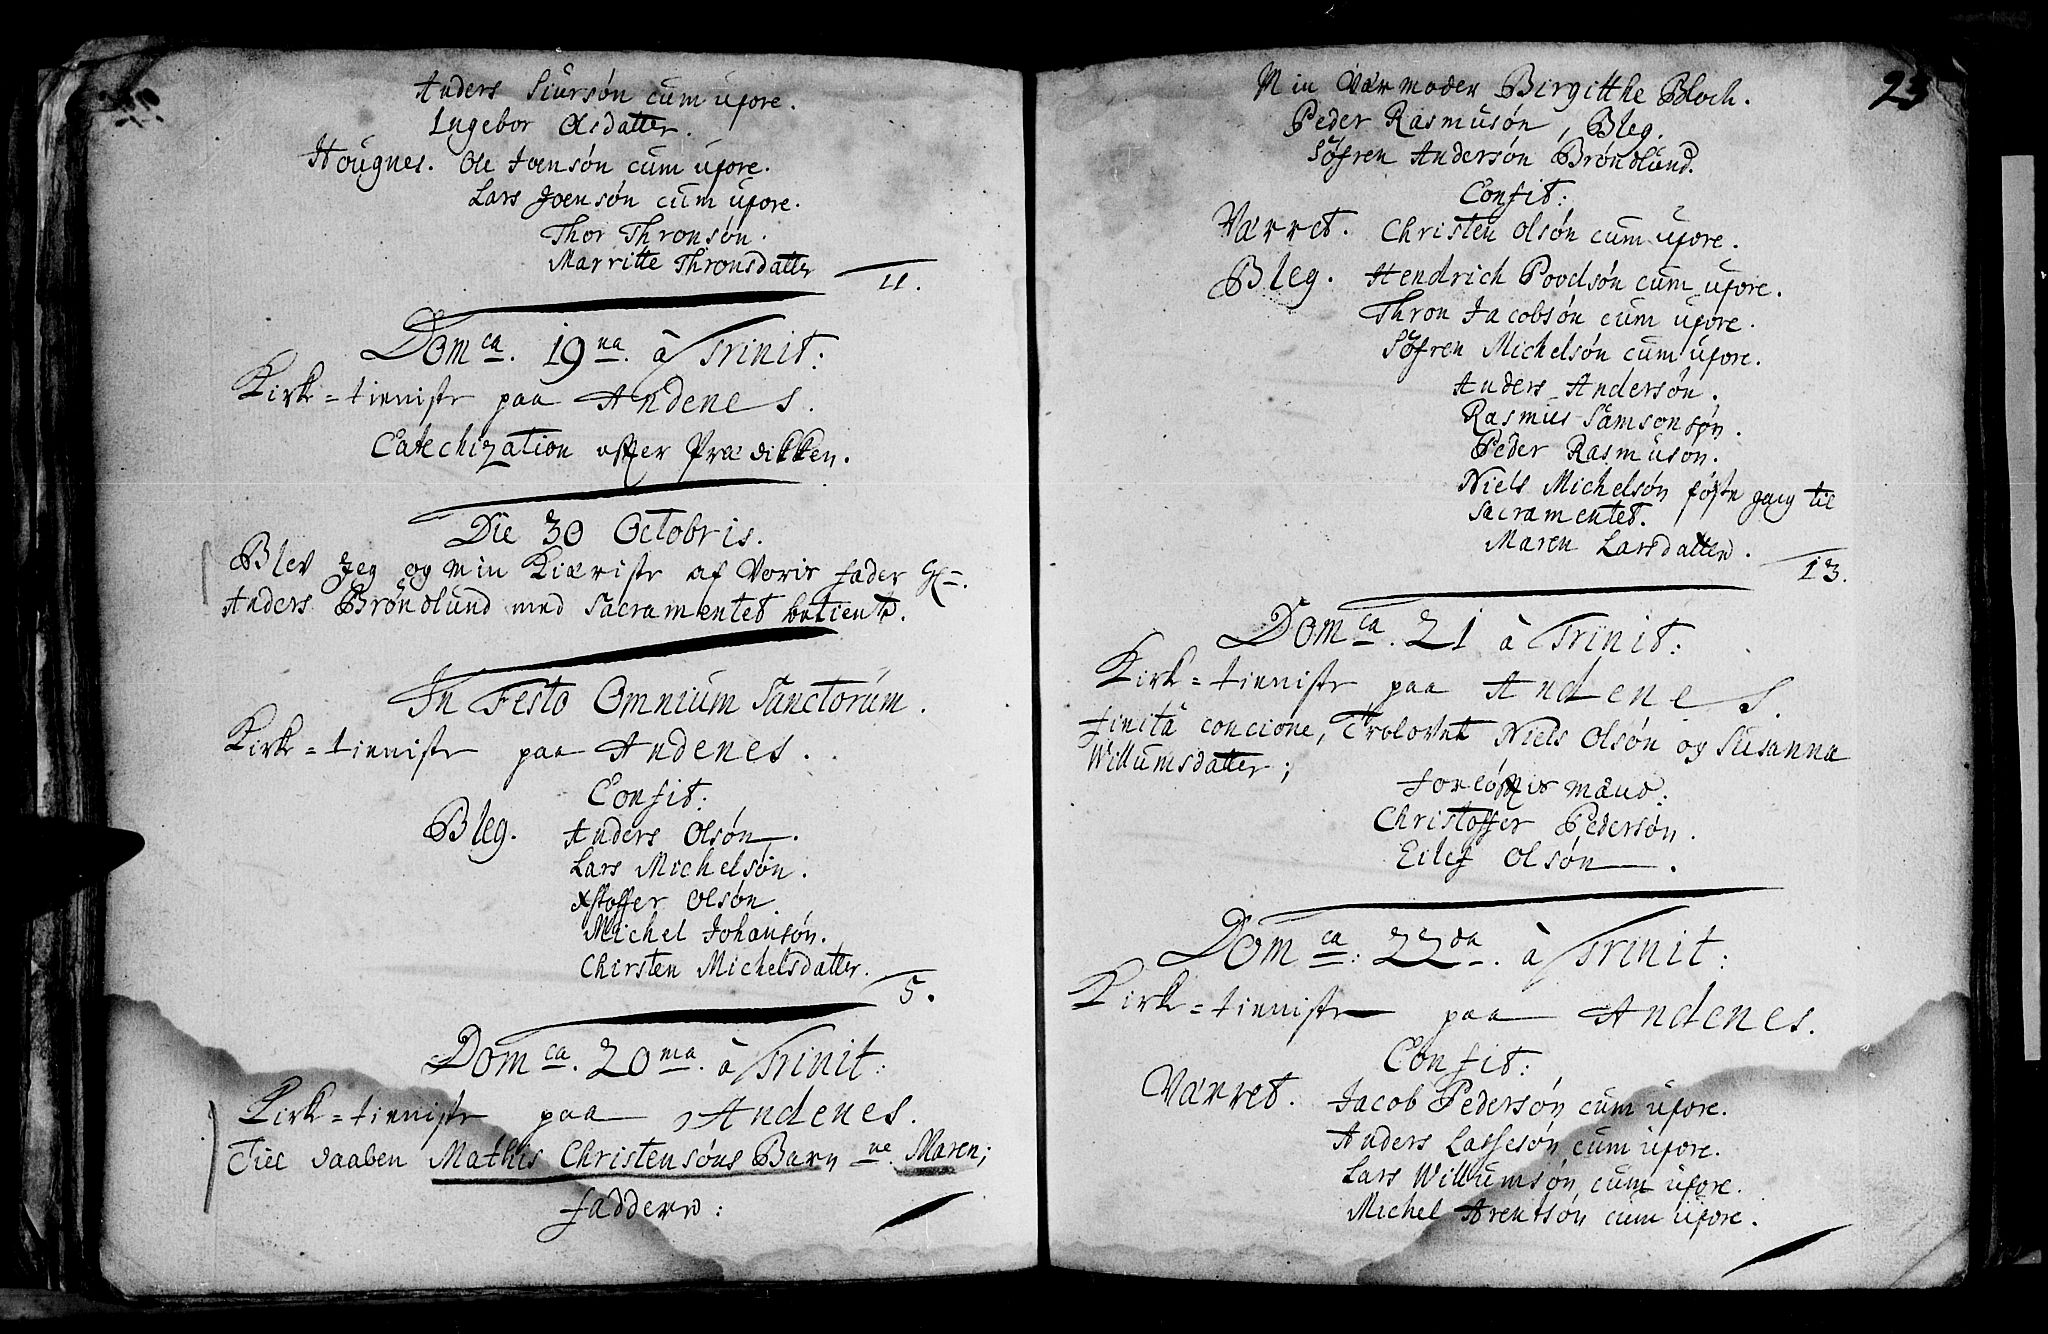 Anders Siursøn cum uxore.
Ingebor Olsdatter.
Hougnes. Ole Joensøn cum uxore.
Lars Joensøn cum uxore.
Thor Thronsøn.
Marritte Thronsdatter
11.
Dom ca. 19 na. à Trinit:
Kirke=tieniste paa Andenes.
Catechization efter Prædikken.
Die 30 Octobris.
Blev Jeg og min Kiæriste af Voris fader Hr.
Anders Brøndlund med Sacramentet betient.
In Festo Omnium Sanctorum.
Kirke=tieniste paa Andenes.
Confit:
Bleg. Anders Olsøn.
Lars Michelsøn.
Xstoffer Olsøn.
Michel Johansøn.
Chirsten Michelsdatter.
5.
Dom ca. 20 ma. à Trinit:
Kirke=tieniste paa Andenes.
Till daaben Mathis Christensøns Barn ne. Maren;
Faddere:
23
Min Værmoder Birgitthe Bloch.
Peder Rasmusøn, Bleg.
Søfren Andersøn Brøndlund.
Confit:
Værret. Christen Olsøn cum uxore.
Bleg. Hendrich Povelsøn cum uxore.
Thron Jacobsøn cum uxore.
Søfren Michelsøn cum uxore.
Anders Andersøn.
Rasmus Samsonsøn.
Peder Rasmusøn.
Niels Michelsøn føste gang til
Sacramentet.
Maren Larsdatter.
13.
Dom ca. 21 à Trinit:
Kirke=tieniste paa Andenes.
finitâ concione, Trolovet Niels Olsøn og Susanna
Willumsdatter;
Forløftis mænd:
Christoffer Pedersøn.
Eilef Olsøn.
Dom ca: 22 da. à Trinit:
Kirke=tieniste paa Andenes.
Confit:
Værret. Jacob Pedersøn cum uxore.
Anders Lassesøn cum uxore.
Lars Willumsøn cum uxore.
Michel Arentsøn cum uxore.